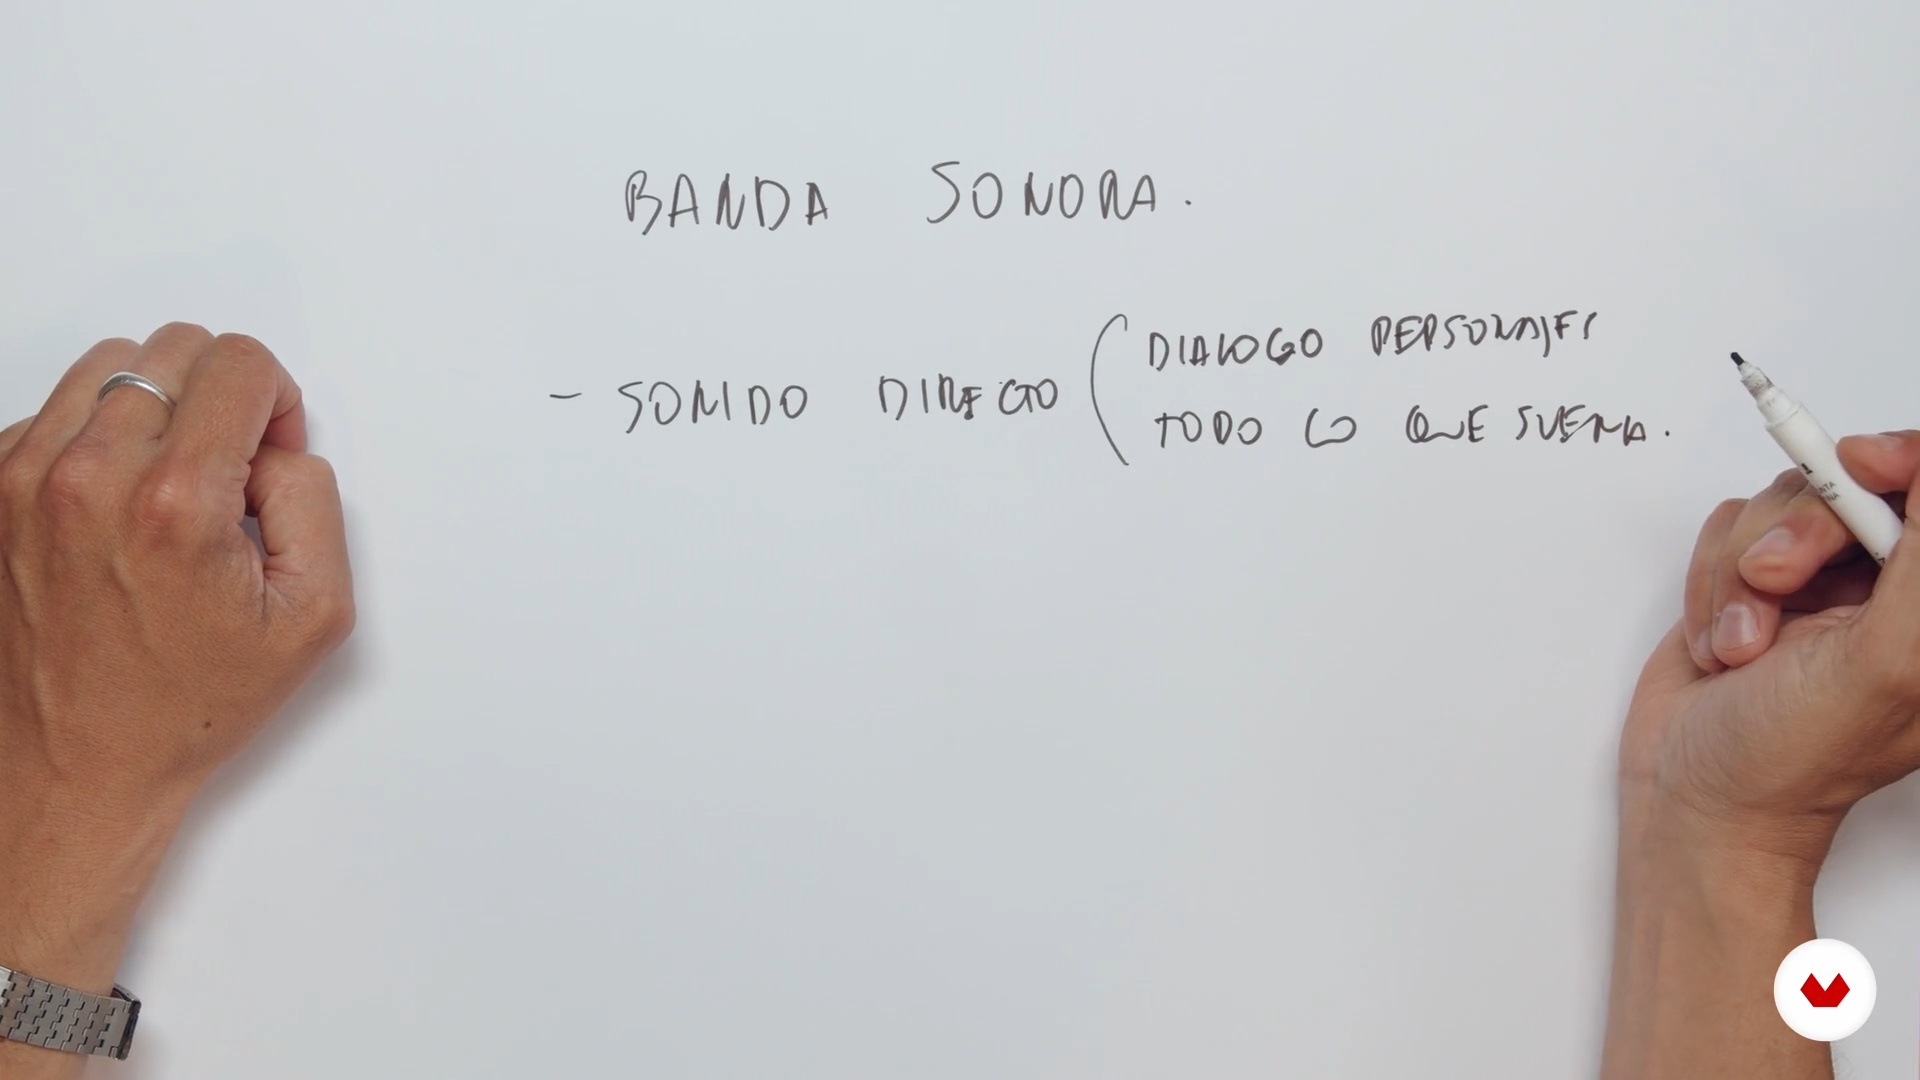 BANDA SONORA.
- SONIDO DIRECTO
DIALOGO PERSONAJES
TODO LO QUE SUENA.
1